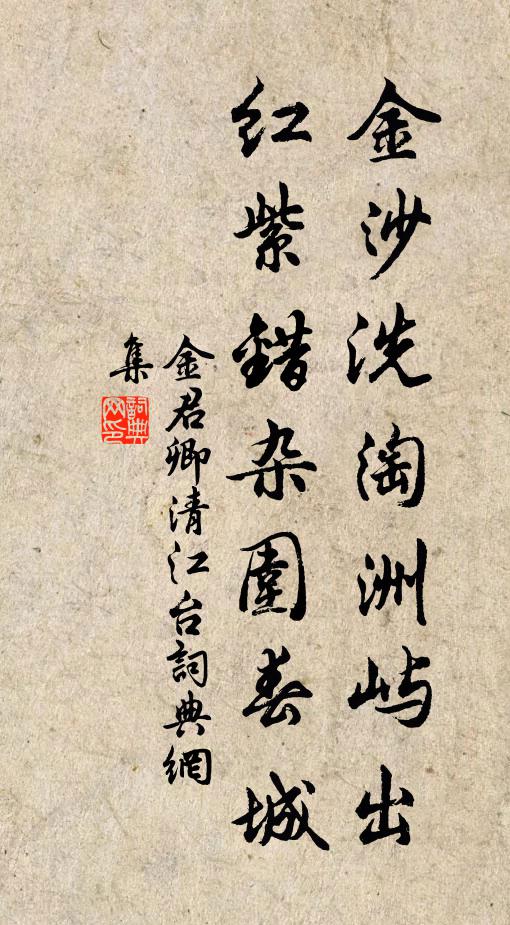 金沙洗淘洲屿出
红紫錯杂圍春城
金君卿清江台詞典網
集
詞典
网印